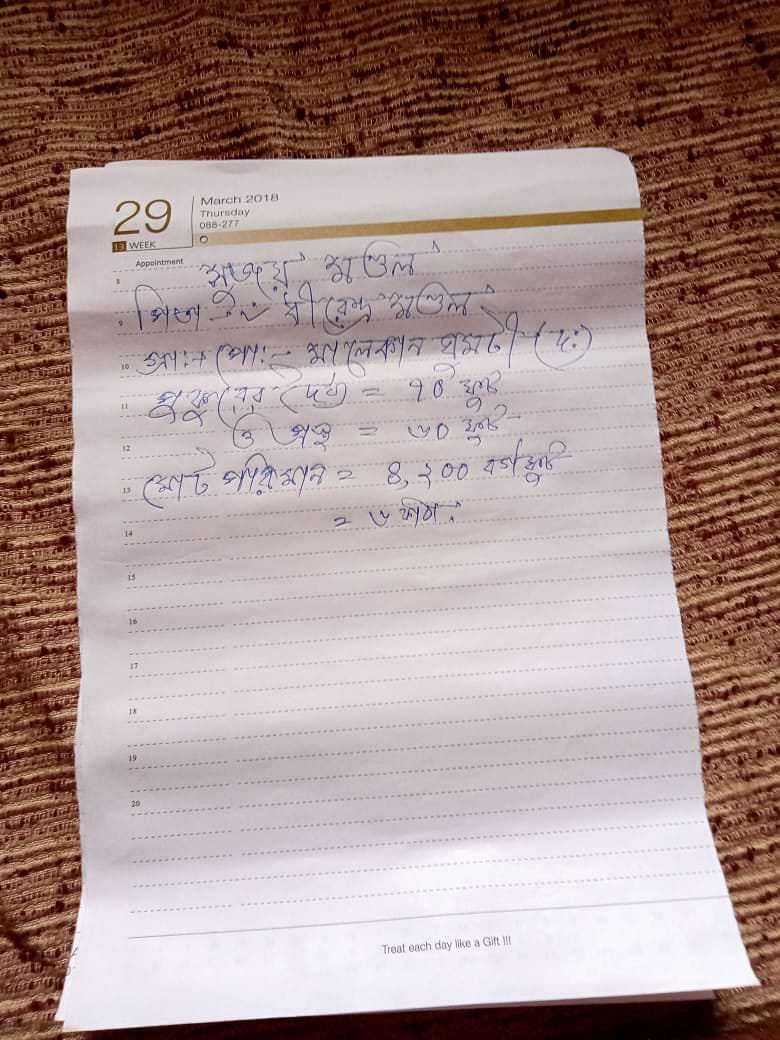 29
March 2018
Thursday
088-277
13 WEEK
Appointment
সুজয় মণ্ডল
8
পিতা :- ধীরেন্দ্র মণ্ডল
9
গ্রাঃ+ পোঃ- মালেকান ঘুমটী (দঃ)
10
পুকুরের দৈর্ঘ্য = ৭০ ফুট
11
ও প্রস্থ = ৬০ ফুট
12
মোট পরিমান = ৪,২০০ বর্গফুট
13
= ৬ কাঠা
14
15
16
17
18
19
20
Treat each day like a Gift !!!